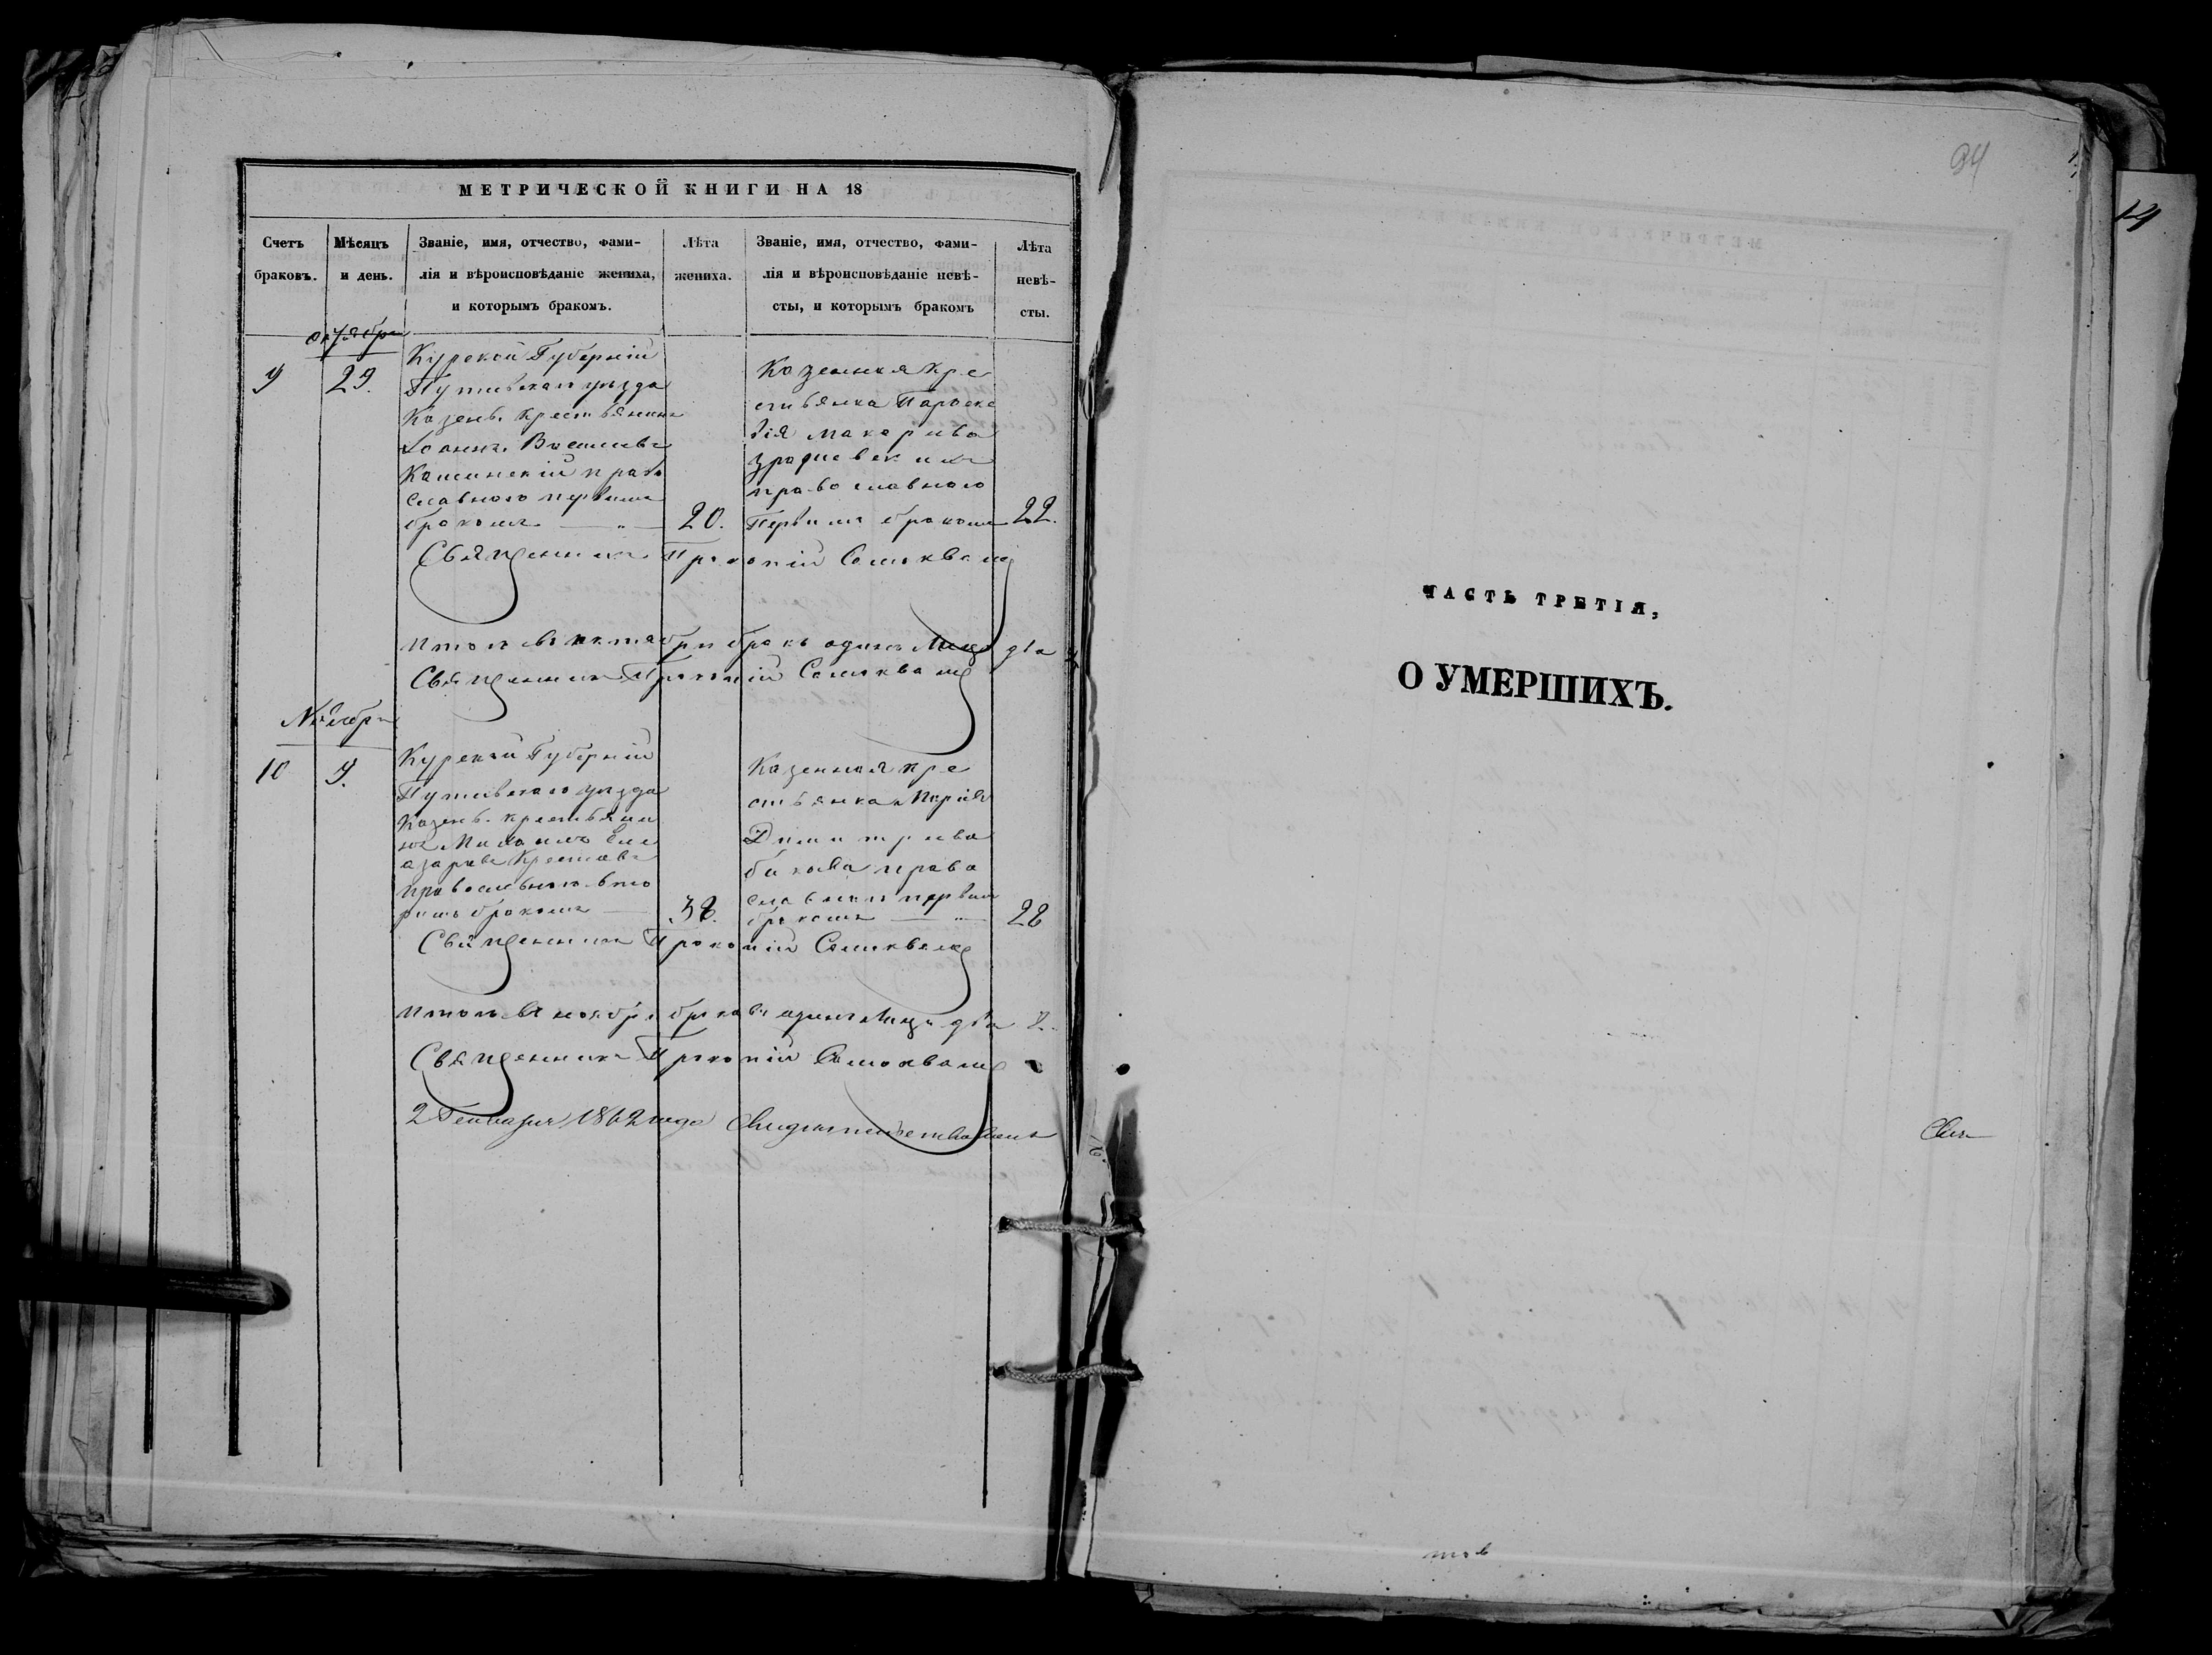 МЕТРИЧЕСКОЙ КНИГИ НА 18
Счетъ браковъ.
Мѣсяцъ и день.
Званіе, имя, отчество, фами-
лія и вѣроисповѣданіе жениха,
и которымъ бракомъ.
Лѣта жениха.
Званіе, имя, отчество, фами-
лія и вѣроисповѣданіе невѣ-
сты, и которымъ бракомъ
Лѣта невѣ-
сты.
октября
9 29.
Курской Губерніи
Путивскаго уезда
Казенъ. крестьянинъ
Іоаннъ Василивъ
Кашинскій право
славного первимъ
бракомъ 20.
Казенная кре
стьянка Параске
вія Макарива
православного
Первимъ бракомъ 22.
Священникъ Прокопій
Итого въ октябри бракъ одинъ Лицъ два
Священникъ Прокопій
Ноября
10 9.
Курской Губерніи
Путивскаго уезда
Казенъ. крестьяни
нъ Михаилъ Еле
азаровъ
православного вто
римъ бракомъ 38.
Казенная кре
стьянка Марія
Димитрива
права
славного первим
бракомъ 28
Священникъ Прокопій
Итого въ ноябрѣ браковъ одинъ Лицъ два 2.
Священникъ Прокопій
2 Генваря 1862 года Свидѣтельствовалъ
94
ЧАСТЬ ТРЕТІЯ,
О УМЕРШИХЪ.